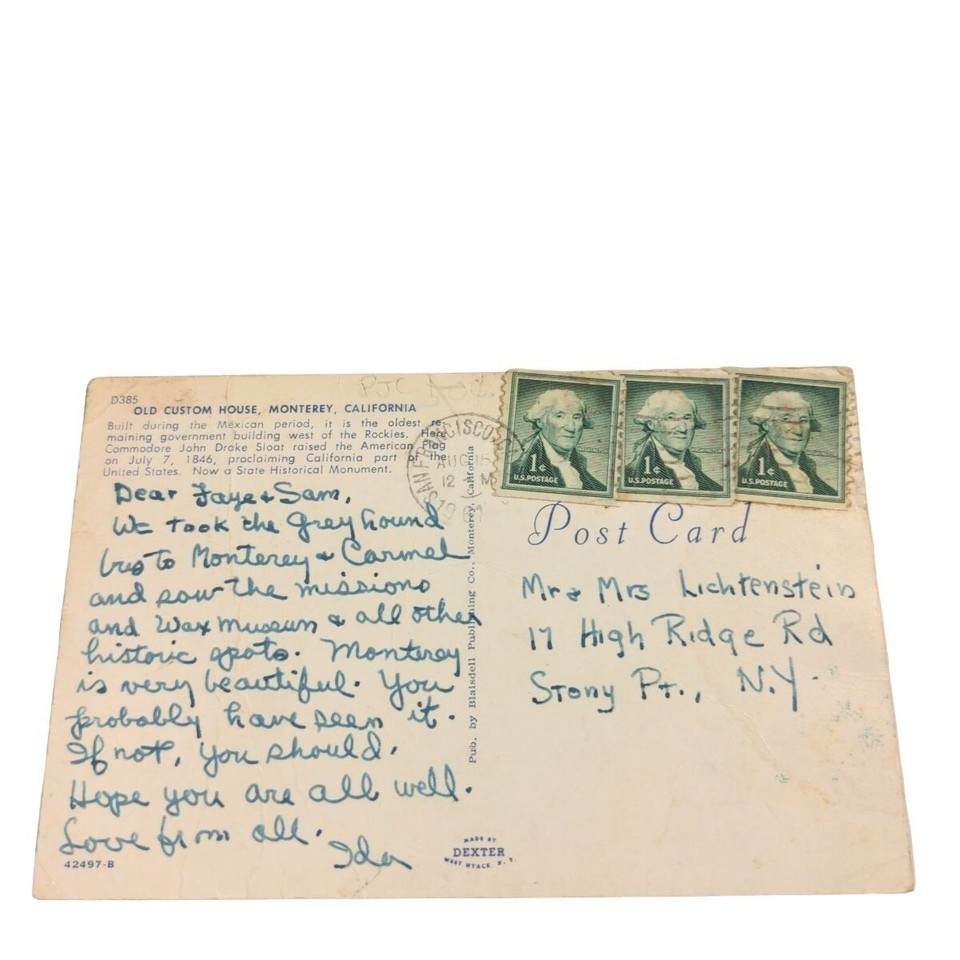 D385
OLD CUSTOM HOUSE, MONTEREY, CALIFORNIA
Built during the Mexican period, it is the oldest re-
maining government building west of the Rockies. Here
Commodore John Drake Sloat raised the American Flag
on July 7, 1846, proclaiming California part of the
United States. Now a State Historical Monument.
Dear Faye & Sam,
We took the Greyhound
bus to Monterey & Carmel
and saw the missions
and Wax Museum & all other
historic spots. Monterey
is very beautiful. You
probably have seen it.
If not, you should.
Hope you are all well.
Love from all.
Ida
42497-B
Pub. by Blaisdell Publishing Co., Monterey, California
MADE BY
DEXTER
WEST NYACK, N. Y.
SAN FRANCISCO
AUG 15
12 M
1961
1¢
U.S. POSTAGE
1¢
U.S. POSTAGE
1¢
U.S. POSTAGE
Post Card
Mr & Mrs Lichtenstein
17 High Ridge Rd
Stony Pt., N.Y.